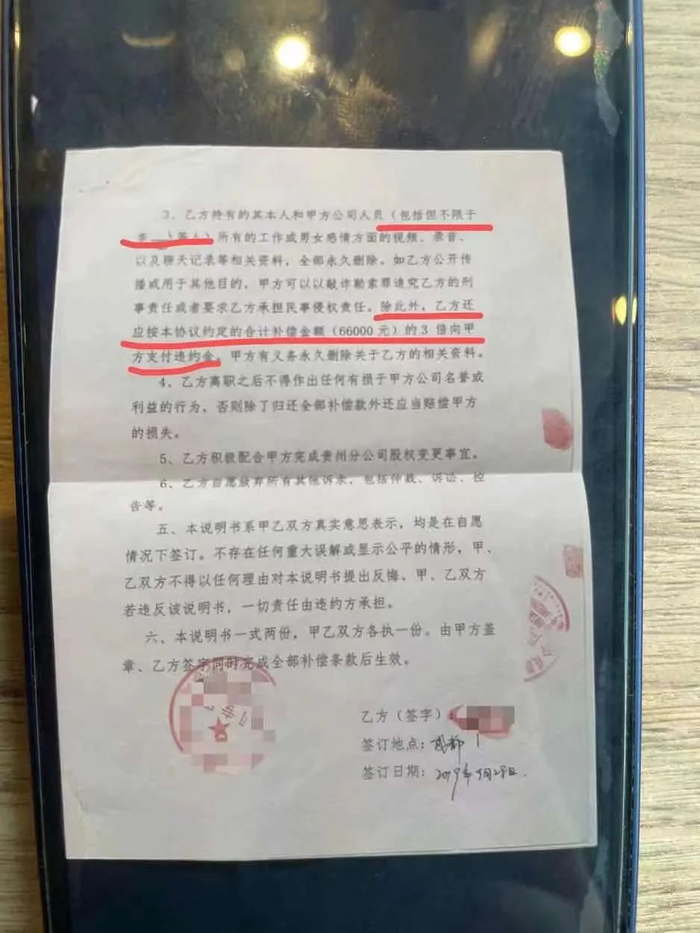 3、乙方持有的其本人和甲方公司人员（包括但不限于
李    等人）所有的工作或男女感情方面的视频、录音、
以及聊天记录等相关资料，全部永久删除。如乙方公开传
播或用于其他目的，甲方可以以敲诈勒索罪追究乙方的刑
事责任或者要求乙方承担民事侵权责任。除此外，乙方还
应按本协议约定的合计补偿金额（66000元）的3倍向甲
方支付违约金。甲方有义务永久删除关于乙方的相关资料。
4、乙方离职之后不得作出任何有损于甲方公司名誉或
利益的行为，否则除了归还全部补偿款外还应当赔偿甲方
的损失。
5、乙方积极配合甲方完成贵州分公司股权变更事宜。
6、乙方自愿放弃所有其他诉求，包括仲裁、诉讼、控
告等。
五、本说明书系甲乙双方真实意思表示，均是在自愿
情况下签订。不存在任何重大误解或显示公平的情形，甲、
乙双方不得以任何理由对本说明书提出反悔。甲、乙双方
若违反该说明书，一切责任由违约方承担。
六、本说明书一式两份，甲乙双方各执一份。由甲方盖
章、乙方签字同时完成全部补偿条款后生效。
乙方（签字）：
签订地点：成都
签订日期：2019年5月28日.